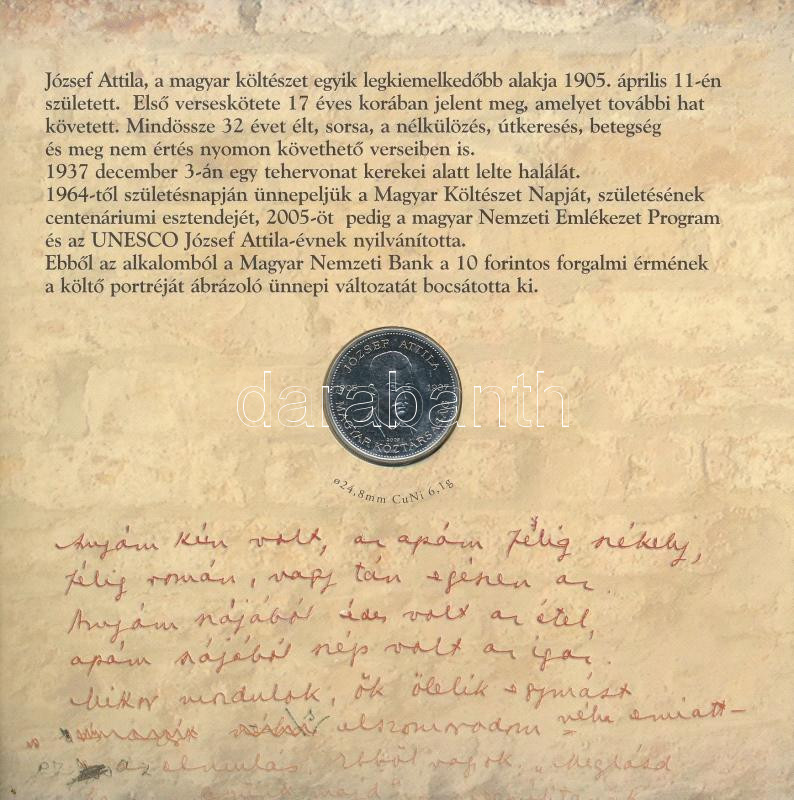 József Attila, a magyar költészet egyik legkiemelkedőbb alakja 1905. április 11-én
született. Első verseskötete 17 éves korában jelent meg, amelyet további hat
követett. Mindössze 32 évet élt, sorsa, a nélkülözés, útkeresés, betegség
és meg nem értés nyomon követhető verseiben is.
1937 december 3-án egy tehervonat kerekei alatt lelte halálát.
1964-től születésnapján ünnepeljük a Magyar Költészet Napját, születésének
centenáriumi esztendejét, 2005-öt pedig a magyar Nemzeti Emlékezet Program
és az UNESCO József Attila-évnek nyilvánította.
Ebből az alkalomból a Magyar Nemzeti Bank a 10 forintos forgalmi érmének
a költő portréját ábrázoló ünnepi változatát bocsátotta ki.
JÓZSEF ATTILA
1905 1937
MAGYAR KÖZTÁRSASÁG
2005
darabanth
ø24,8mm CuNi 6,1g
Anyám kún volt, az apám félig székely,
félig román, vagy tán egészen az.
Anyám szájából édes volt az étel,
apám szájából szép volt az igaz.
Mikor mozdulok, ők ölelik egymást
elszomorodom néha emiatt –
ez az elmulás. Ebből vagyok. „Meglásd